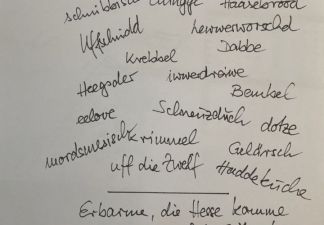 Haaseborood
Uffschnidd Lewwerworschd
Krebbel Dabbe
Heegsder iwwerdraiwe
Bembel
eelove Schneizduch dotze
mordsmesisch krimmel Geldrsch
uff die Zwelf Haddekuche
Erbarme, die Hesse komme